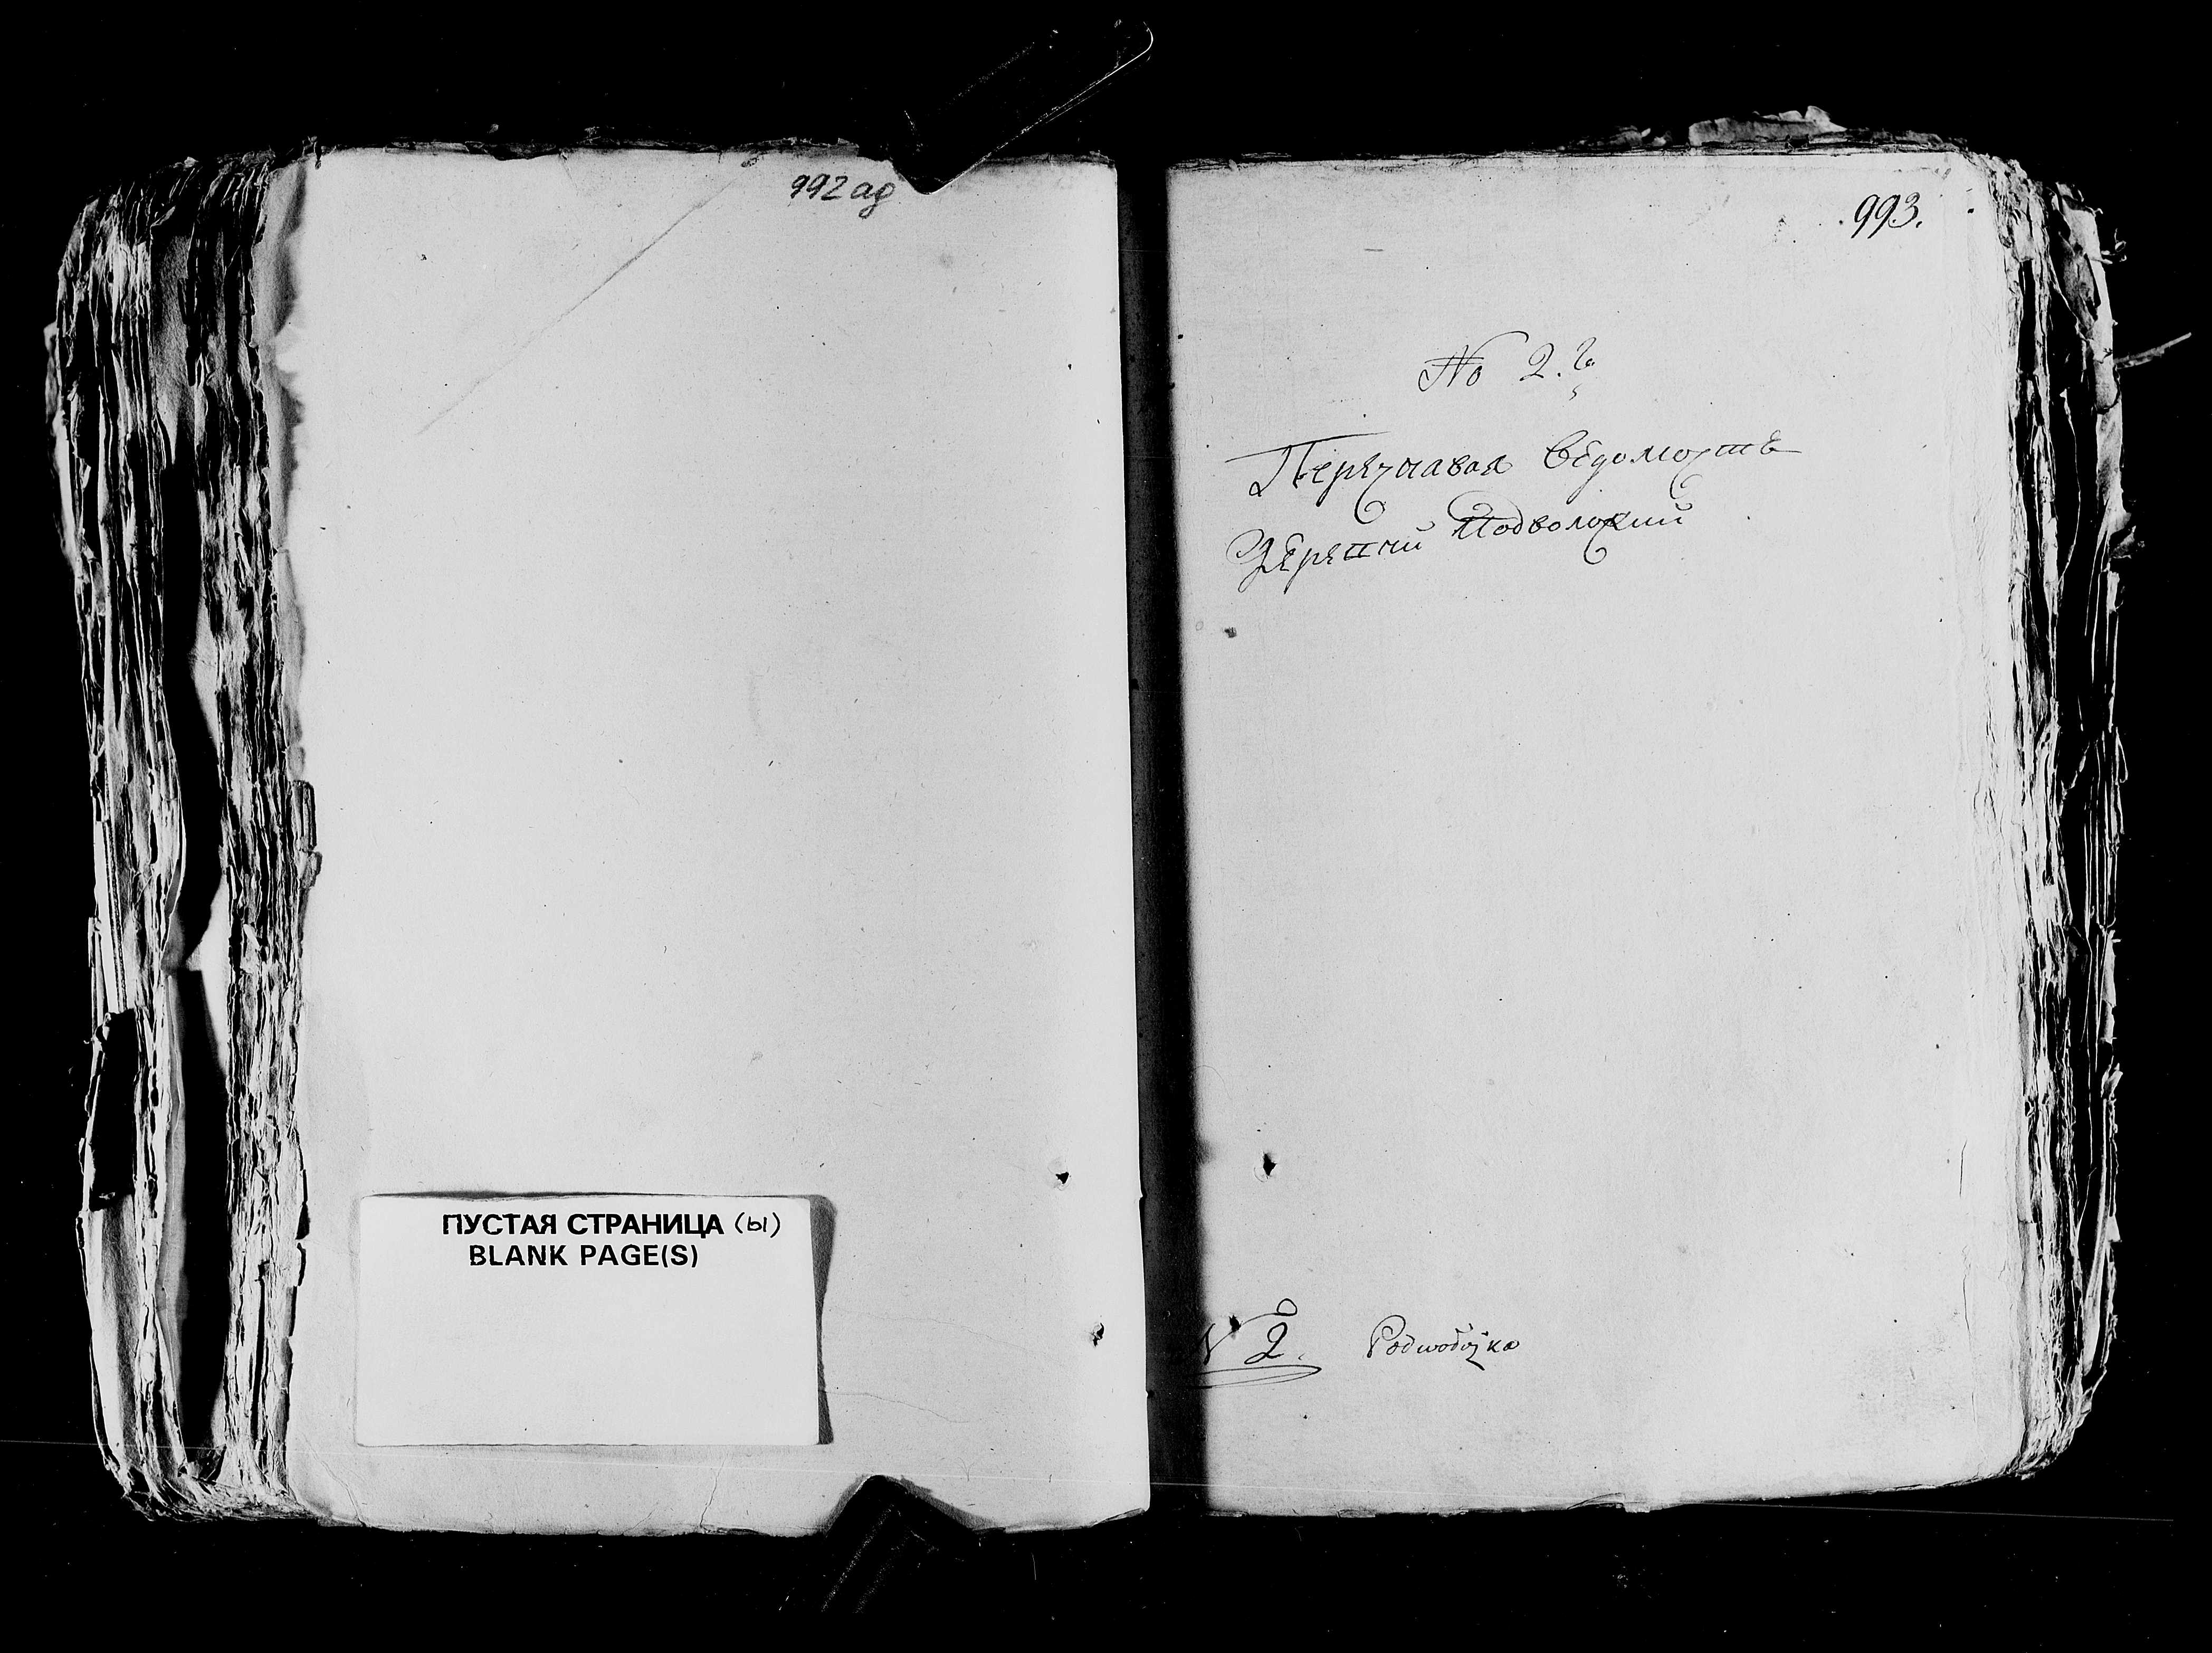 992 ад
ПУСТАЯ СТРАНИЦА (ы)
BLANK PAGE(S)
993.
No 2.й
Перечнавая вѣдомость
Деревни Подволоки
N 2. Podwołoka